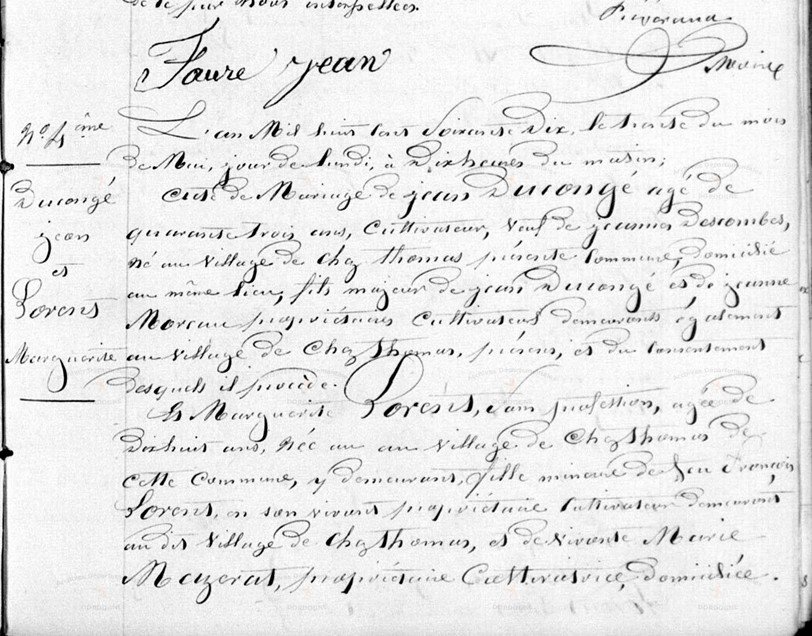 de le par Nous interpellés.
Maire
Faure Jean
N.o 4ème
Ducongé
jean
et
Lorent
Marguerite
L'an Mil huit Cent Soixante Dix, le trente du mois
de Mai, jour de lundi, à Dix heures du matin;
acte de Mariage de jean Ducongé agé de
quarante trois ans, Cultivateur, Veuf de jeanne Descombes,
né au Village de Chez thomas présente Commune, domicilié
au même lieu, fils majeur de jean Ducongé et de jeanne
Moreau propriétaires Cultivateurs demeurants également
au Village de Chez Thomas, présents, et du consentement
desquels il procède.
Et Marguerite Lorent, Sans profession, agée de
Dix huit ans, Née au au Village de Chez Thomas de
cette Commune, y demeurant, fille mineure de feu François
Lorent, en son vivant propriétaire Cultivateur demeurant
au dit Village de Chez Thomas, et de vivante Marie
Mazerat, propriétaire Cultivatrice, domiciliée.